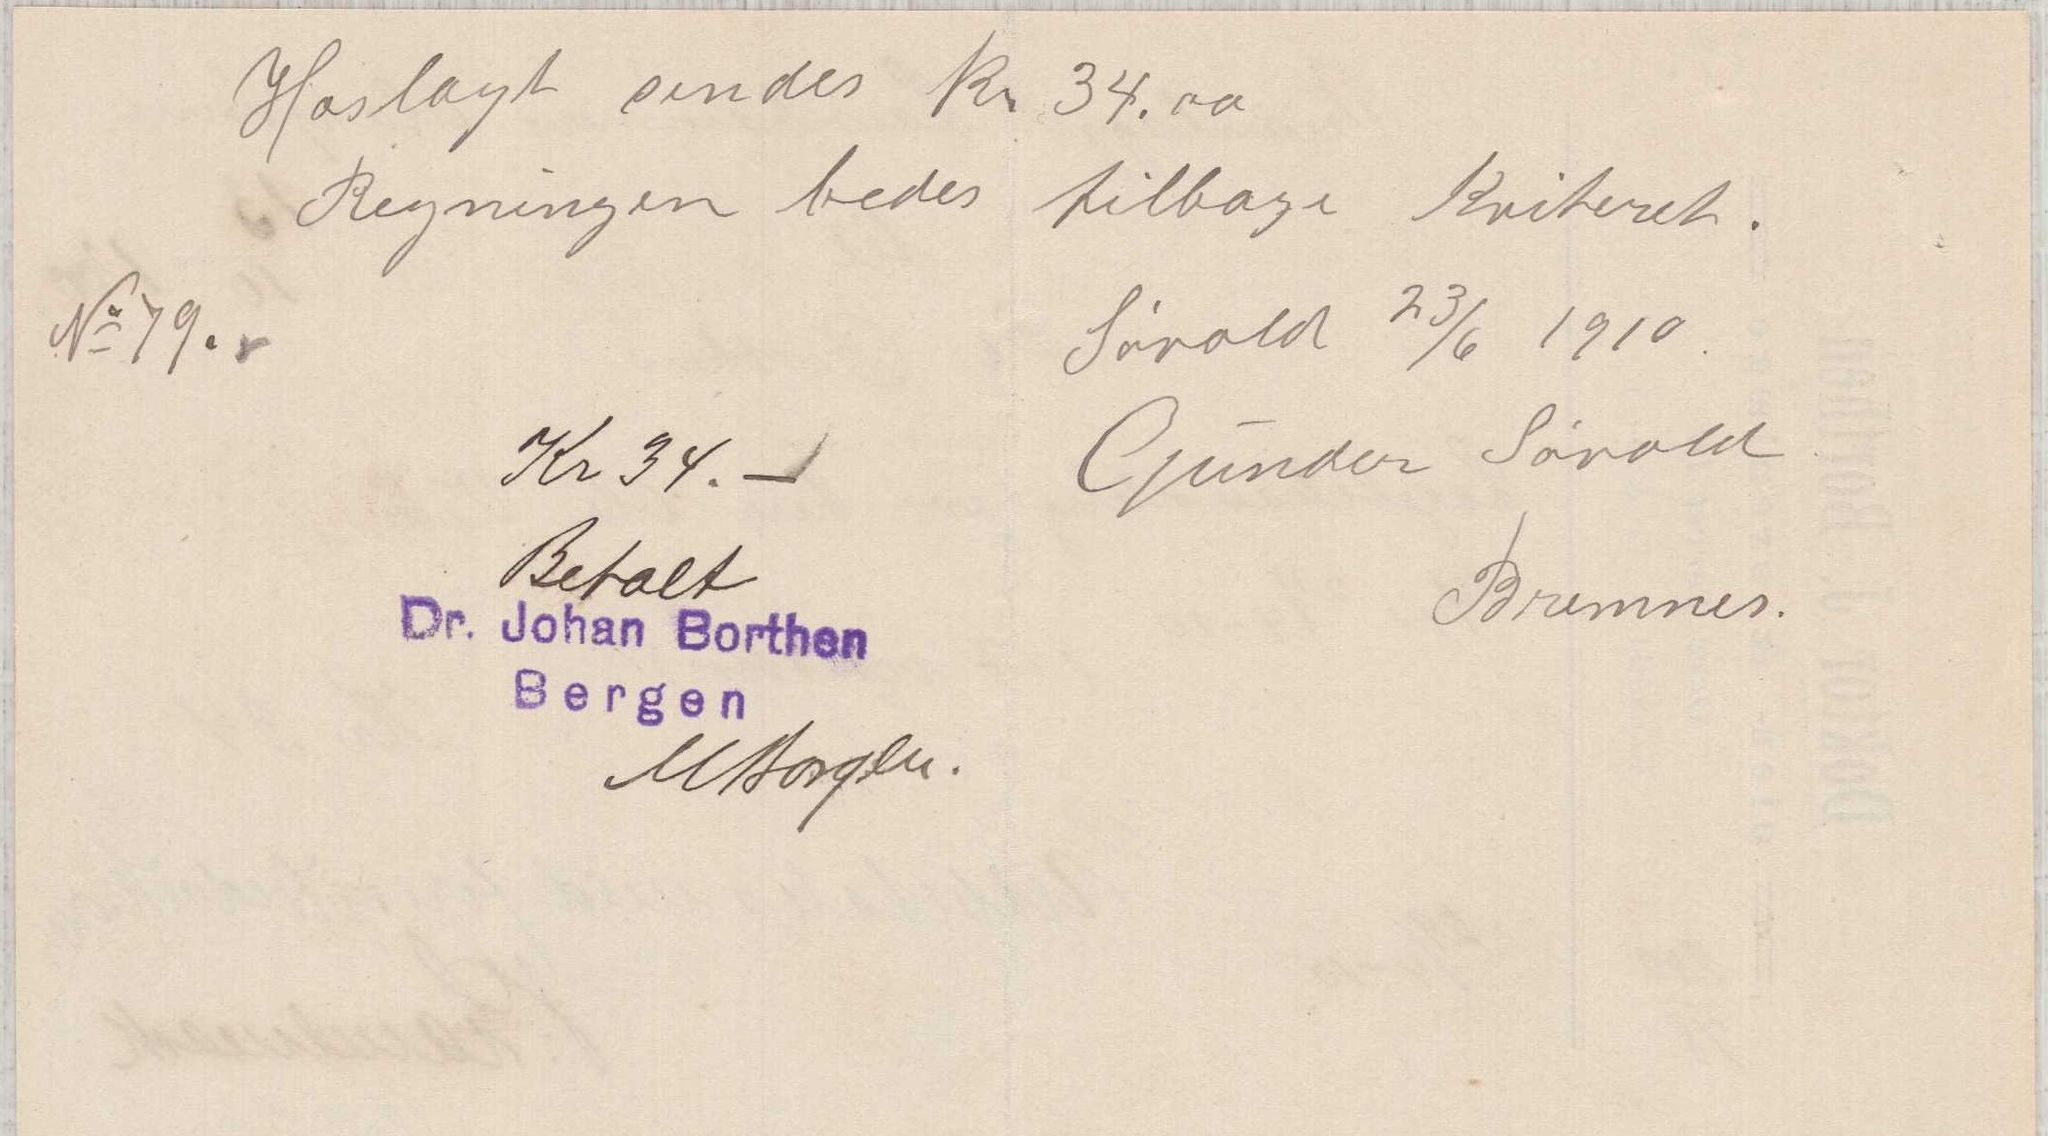 Hoslagt sendes Kr 34.00
Regningen bedes tilbage Kviteret.
No 79.
Sørold 23/6 1910.
Gunder Sørold
Bremnes.
Kr 34.—
Betalt
Dr. Johan Borthen
Bergen